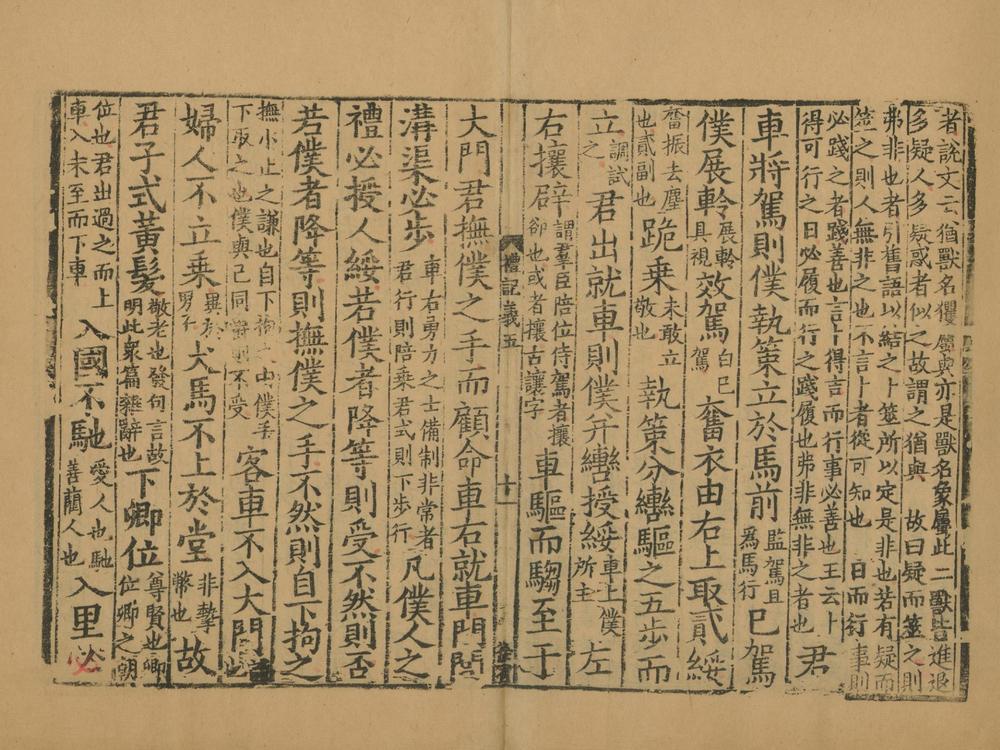 者說文云猶獸名玃屬與亦是獸名象屬此二獸皆進退
多疑人多疑惑者似之故謂之猶與 故曰疑而筮之則
弗非也者引舊語以結之卜筮所以定是非也若有疑而
筮之則人無非之也不言卜者從可知也 日而行事則
必踐之者踐善也言卜得吉而行事必善也王云卜
得可行之日必履而行之踐履也弗非無非之者也 君
車將駕則僕執策立於馬前監駕且爲馬行已駕
僕展軨展軨具視效駕白已駕奮衣由右上取貳綏
奮振去塵也貳副也跪乘未敢立敬也執策分轡驅之五步而
立調試之君出就車則僕并轡授綏車上僕所主左
右攘辟謂羣臣陪位侍駕者攘卻也或者攘古讓字車驅而騶至于
禮記義五 十一
大門君撫僕之手而顧命車右就車門閭
溝渠必步車右勇力之士備制非常者君行則陪乘君式則下步行凡僕人之
禮必授人綏若僕者降等則受不然則否
若僕者降等則撫僕之手不然則自下拘之
撫小止之謙也自下拘之由僕手下取之也僕與己同爵則不受客車不入大門
婦人不立乘異於男子犬馬不上於堂非摯幣也故
君子式黃髮敬老也發句言故明此衆篇雜辭也下卿位尊賢也卿位卿之朝
位也君出過之而上車入未至而下車入國不馳愛人也馳善藺人也入里必